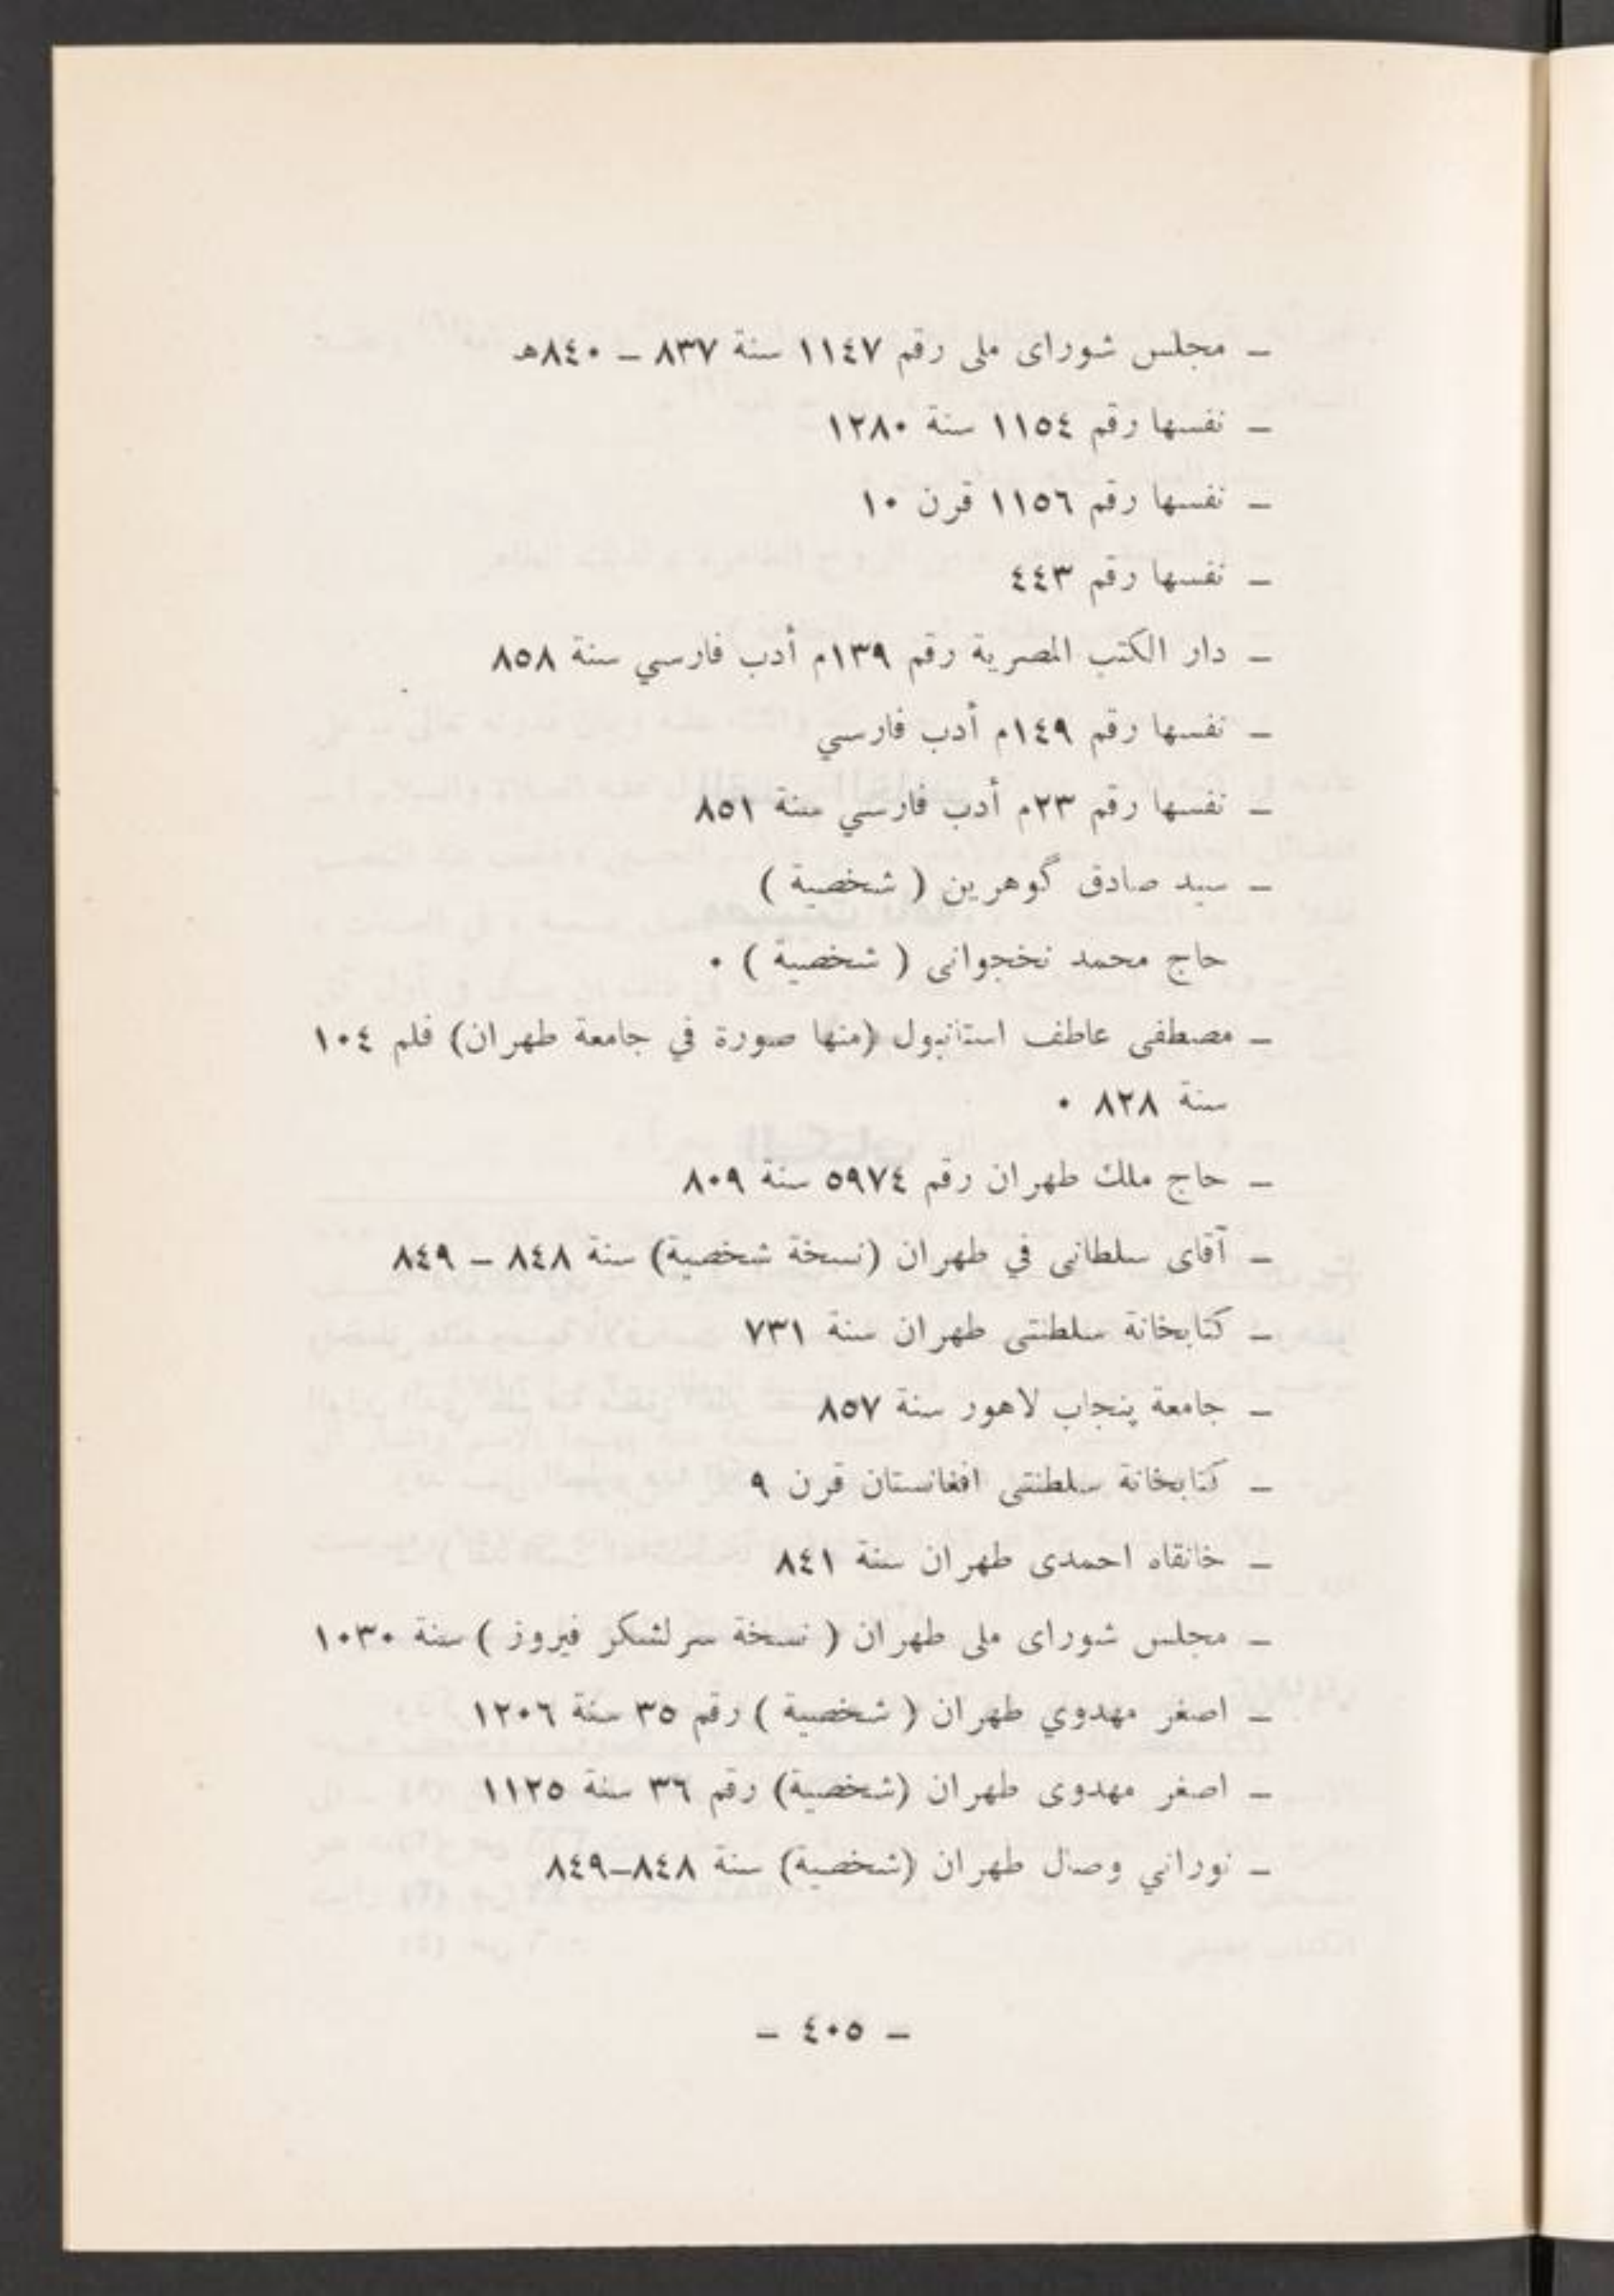 ـ مجلس شورای ملی رقم ١١٤٧ سنة ٨٣٧ ـ ٨٤٠هـ
ـ نفسها رقم ١١٥٤ سنة ١٢٨٠
ـ نفسها رقم ١١٥٦ قرن ١٠
ـ نفسها رقم ٤٤٣
ـ دار الكتب المصرية رقم ١٣٩م أدب فارسي سنة ٨٥٨
ـ نفسها رقم ١٤٩م أدب فارسي
ـ نفسها رقم ٢٣م أدب فارسي سنة ٨٥١
ـ سيد صادق گوهرين ( شخصية )
حاج محمد نخجوانى ( شخصية ) ٠
ـ مصطفى عاطف استانبول (منها صورة في جامعة طهران) فلم ١٠٤
سنة ٨٢٨ ٠
ـ حاج ملك طهران رقم ٥٩٧٤ سنة ٨٠٩
ـ آقاى سلطانى في طهران (نسخة شخصية) سنة ٨٤٨ ـ ٨٤٩
ـ كتابخانة سلطنتى طهران سنة ٧٣١
ـ جامعة پنجاب لاهور سنة ٨٥٧
ـ كتابخانة سلطنتى افغانستان قرن ٩
ـ خانقاه احمدى طهران سنة ٨٤١
ـ مجلس شوراى ملى طهران ( نسخة سرلشكر فيروز ) سنة ١٠٣٠
ـ اصغر مهدوي طهران ( شخصية ) رقم ٣٥ سنة ١٢٠٦
ـ اصغر مهدوى طهران (شخصية) رقم ٣٦ سنة ١١٢٥
ـ نوراني وصال طهران (شخصية) سنة ٨٤٨ـ٨٤٩
ـ ٤٠٥ ـ